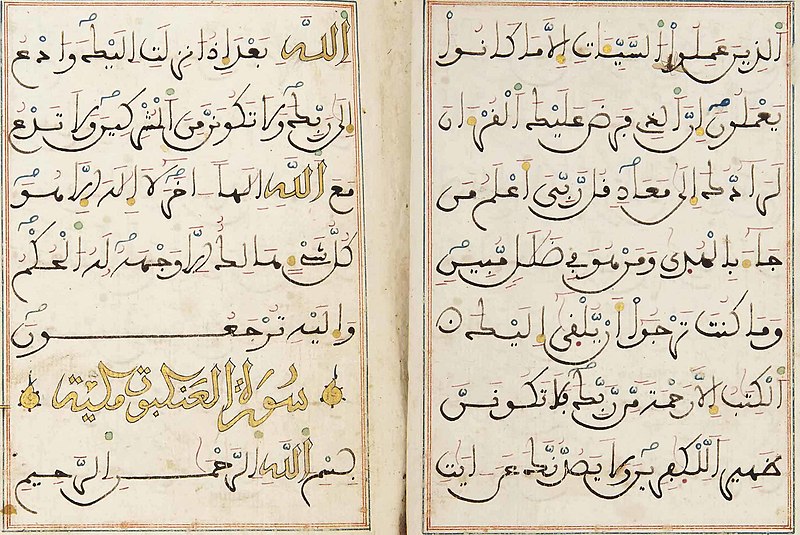 الذين عملوا السيئات إلا ما كانوا
يعملون إن الذي فرض عليك القرءان
لرادك إلى معاد قل ربي أعلم من
جاء بالهدى ومن هو في ضلل مبين
وما كنت ترجوا أن يلقى إليك
الكتب إلا رحمة من ربك فلا تكونن
ظهيرا للكفرين ولا يصدنك عن ءايت
الله بعد إذ انزلت إليك وادع
إلى ربك ولا تكونن من المشركين ولا تدع
مع الله إلها ءاخر لا إله إلا هو
كل شيء هالك إلا وجهه له الحكم
وإليه ترجعون
سورة العنكبوت مكية
بسم الله الرحمن الرحيم